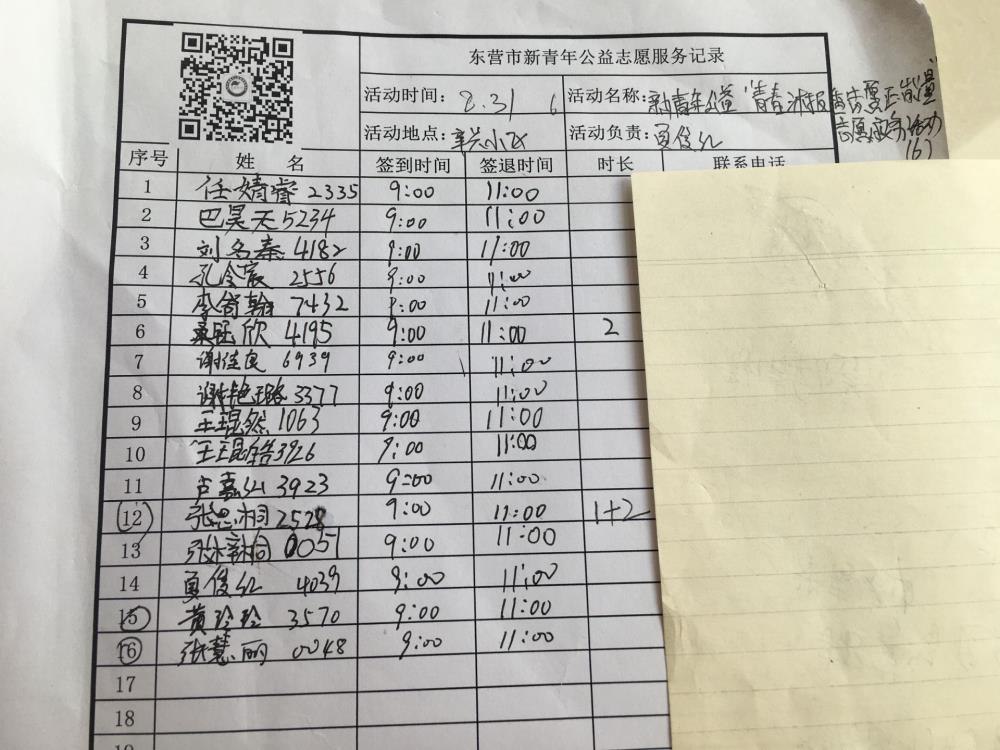 东营市新青年公益志愿服务记录
活动时间: 8.31 6 活动名称: 新青年公益"青春
志愿服务活动
(6)
活动地点: 活动负责:
序号 姓 名 签到时间 签退时间 时长 联系电话
1 任婧睿 2335 9:00 11:00
2 巴昊天 5234 9:00 11:00
3 刘名秦 4182 9:00 11:00
4 孔令宸 2556 9:00 11:00
5 李舒翰 7432 9:00 11:00
6 欣 4195 9:00 11:00 2
7 谢佳良 6939 9:00 11:00
8 谢艳璐 3377 9:00 11:00
9 王琨然 1063 9:00 11:00
10 王琨皓 3926 9:00 11:00
11 卢嘉 3923 9:00 11:00
12 张思桐 2528 9:00 11:00 1+2
13 张梓桐 0051 9:00 11:00
14 4039 9:00 11:00
15 黄玲玲 3570 9:00 11:00
16 张慧丽 0048 9:00 11:00
17
18